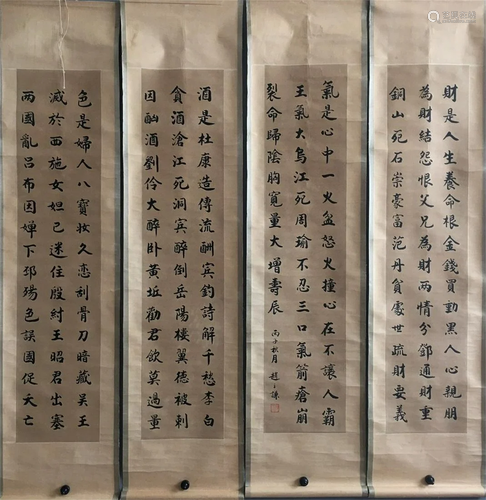 財是人生養命根金錢買動黑人心親朋
為財結怨恨父兄為財兩情分鄧通財重
銅山死石崇豪富范丹貧處世疏財要義
氣是心中一火盆怒火撞心在不讓人霸
王氣大烏江死周瑜不忍三口氣箭瘡崩
裂命歸陰胸寬量大增壽辰
丙子秋月 趙之謙
酒是杜康造傳流酬賓釣詩解千愁李白
貪酒滄江死洞賓醉倒岳陽樓翼德被刺
因酗酒劉伶大醉臥黃坵勸君飲莫過量
色是婦人八寶妝久恋刮骨刀暗藏吴王
滅於西施女妲己迷住殷紂王昭君出塞
兩國亂吕布因嬋下邳殤色誤國促夭亡